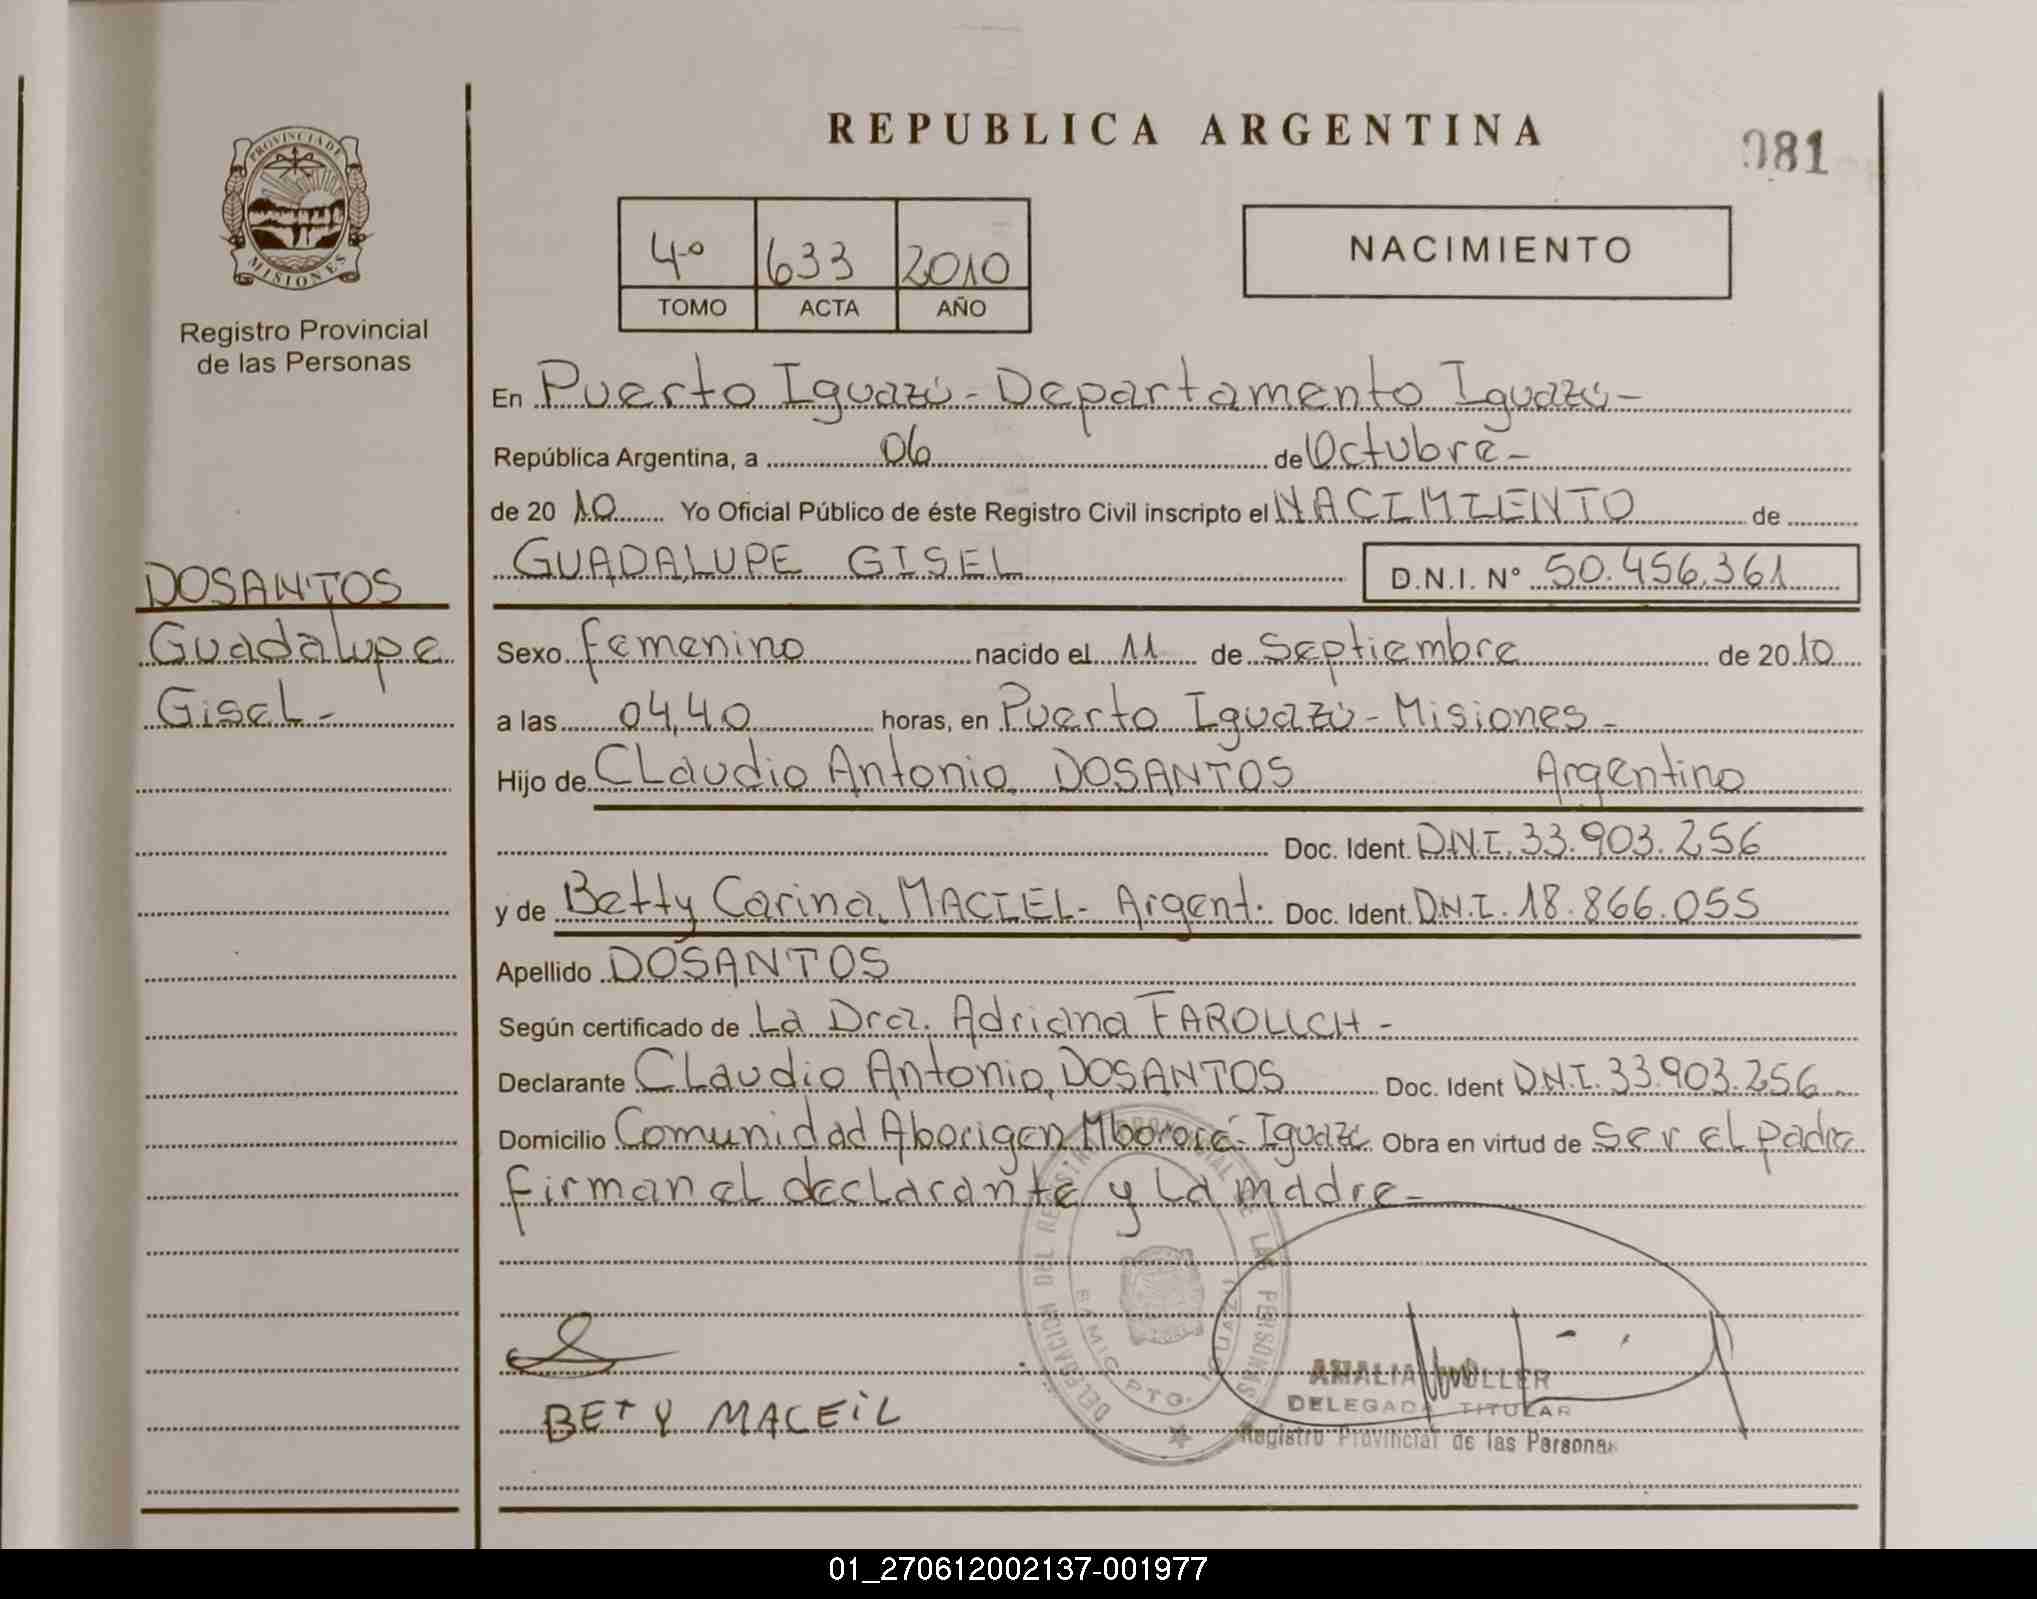 REPUBLICA ARGENTINA
081
PROVINCIA DE MISIONES
Registro Provincial
de las Personas
4º 633 2010
TOMO ACTA AÑO
NACIMIENTO
En Puerto Iguazú - Departamento Iguazú -
República Argentina, a 06 de Octubre -
de 20 10 Yo Oficial Público de éste Registro Civil inscripto el NACIMIENTO de
GUADALUPE GISEL D.N.I. Nº 50.456.361
DOSANTOS
Guadalupe
Gisel -
Sexo femenino nacido el 11 de Septiembre de 2010
a las 04,40 horas, en Puerto Iguazú - Misiones -
Hijo de Claudio Antonio DOSANTOS Argentino
Doc. Ident. D.N.I. 33.903.256
y de Betty Carina MACIEL - Argent. Doc. Ident. D.N.I. 18.866.055
Apellido DOSANTOS
Según certificado de La Dra. Adriana -
Declarante Claudio Antonio DOSANTOS Doc. Ident D.N.I. 33.903.256
Domicilio Comunidad Aborigen Mbororé - Iguazú Obra en virtud de Ser el padre
firman el declarante y la madre -
BETY MACEiL
DELEGACION DEL REGISTRO PROVINCIAL DE LAS PERSONAS
SAMIC PTO. IGUAZU
AMALIA MULLER
DELEGADA TITULAR
Registro Provincial de las Personas
01_270612002137-001977